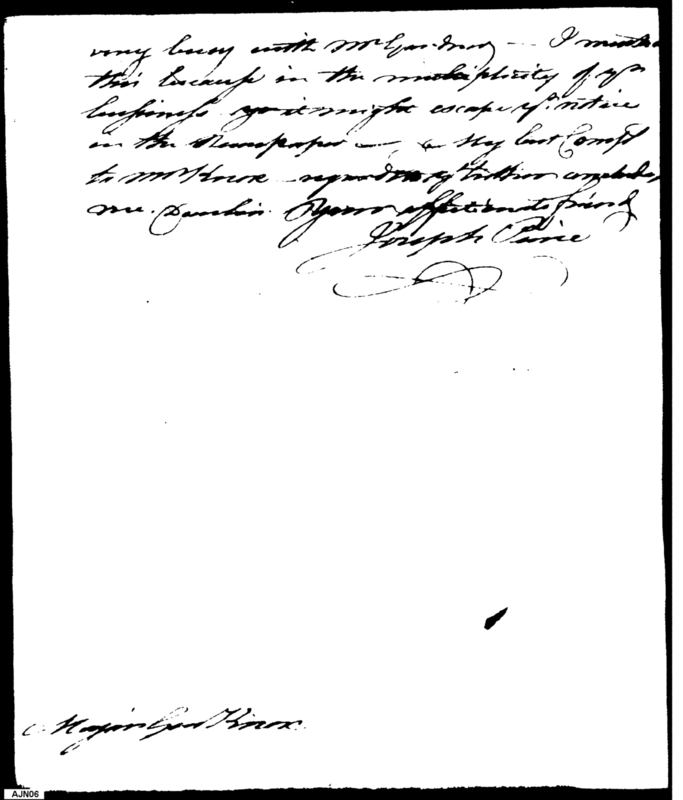 very busy with Mr Gardner — I mention
this because in the multiplicity of yr
business it might escape yr notice
in the Newspaper — & My best Compts
to Mrs Knox
me. Affectionate friend
Joseph
Major Genl Knox
AJN06